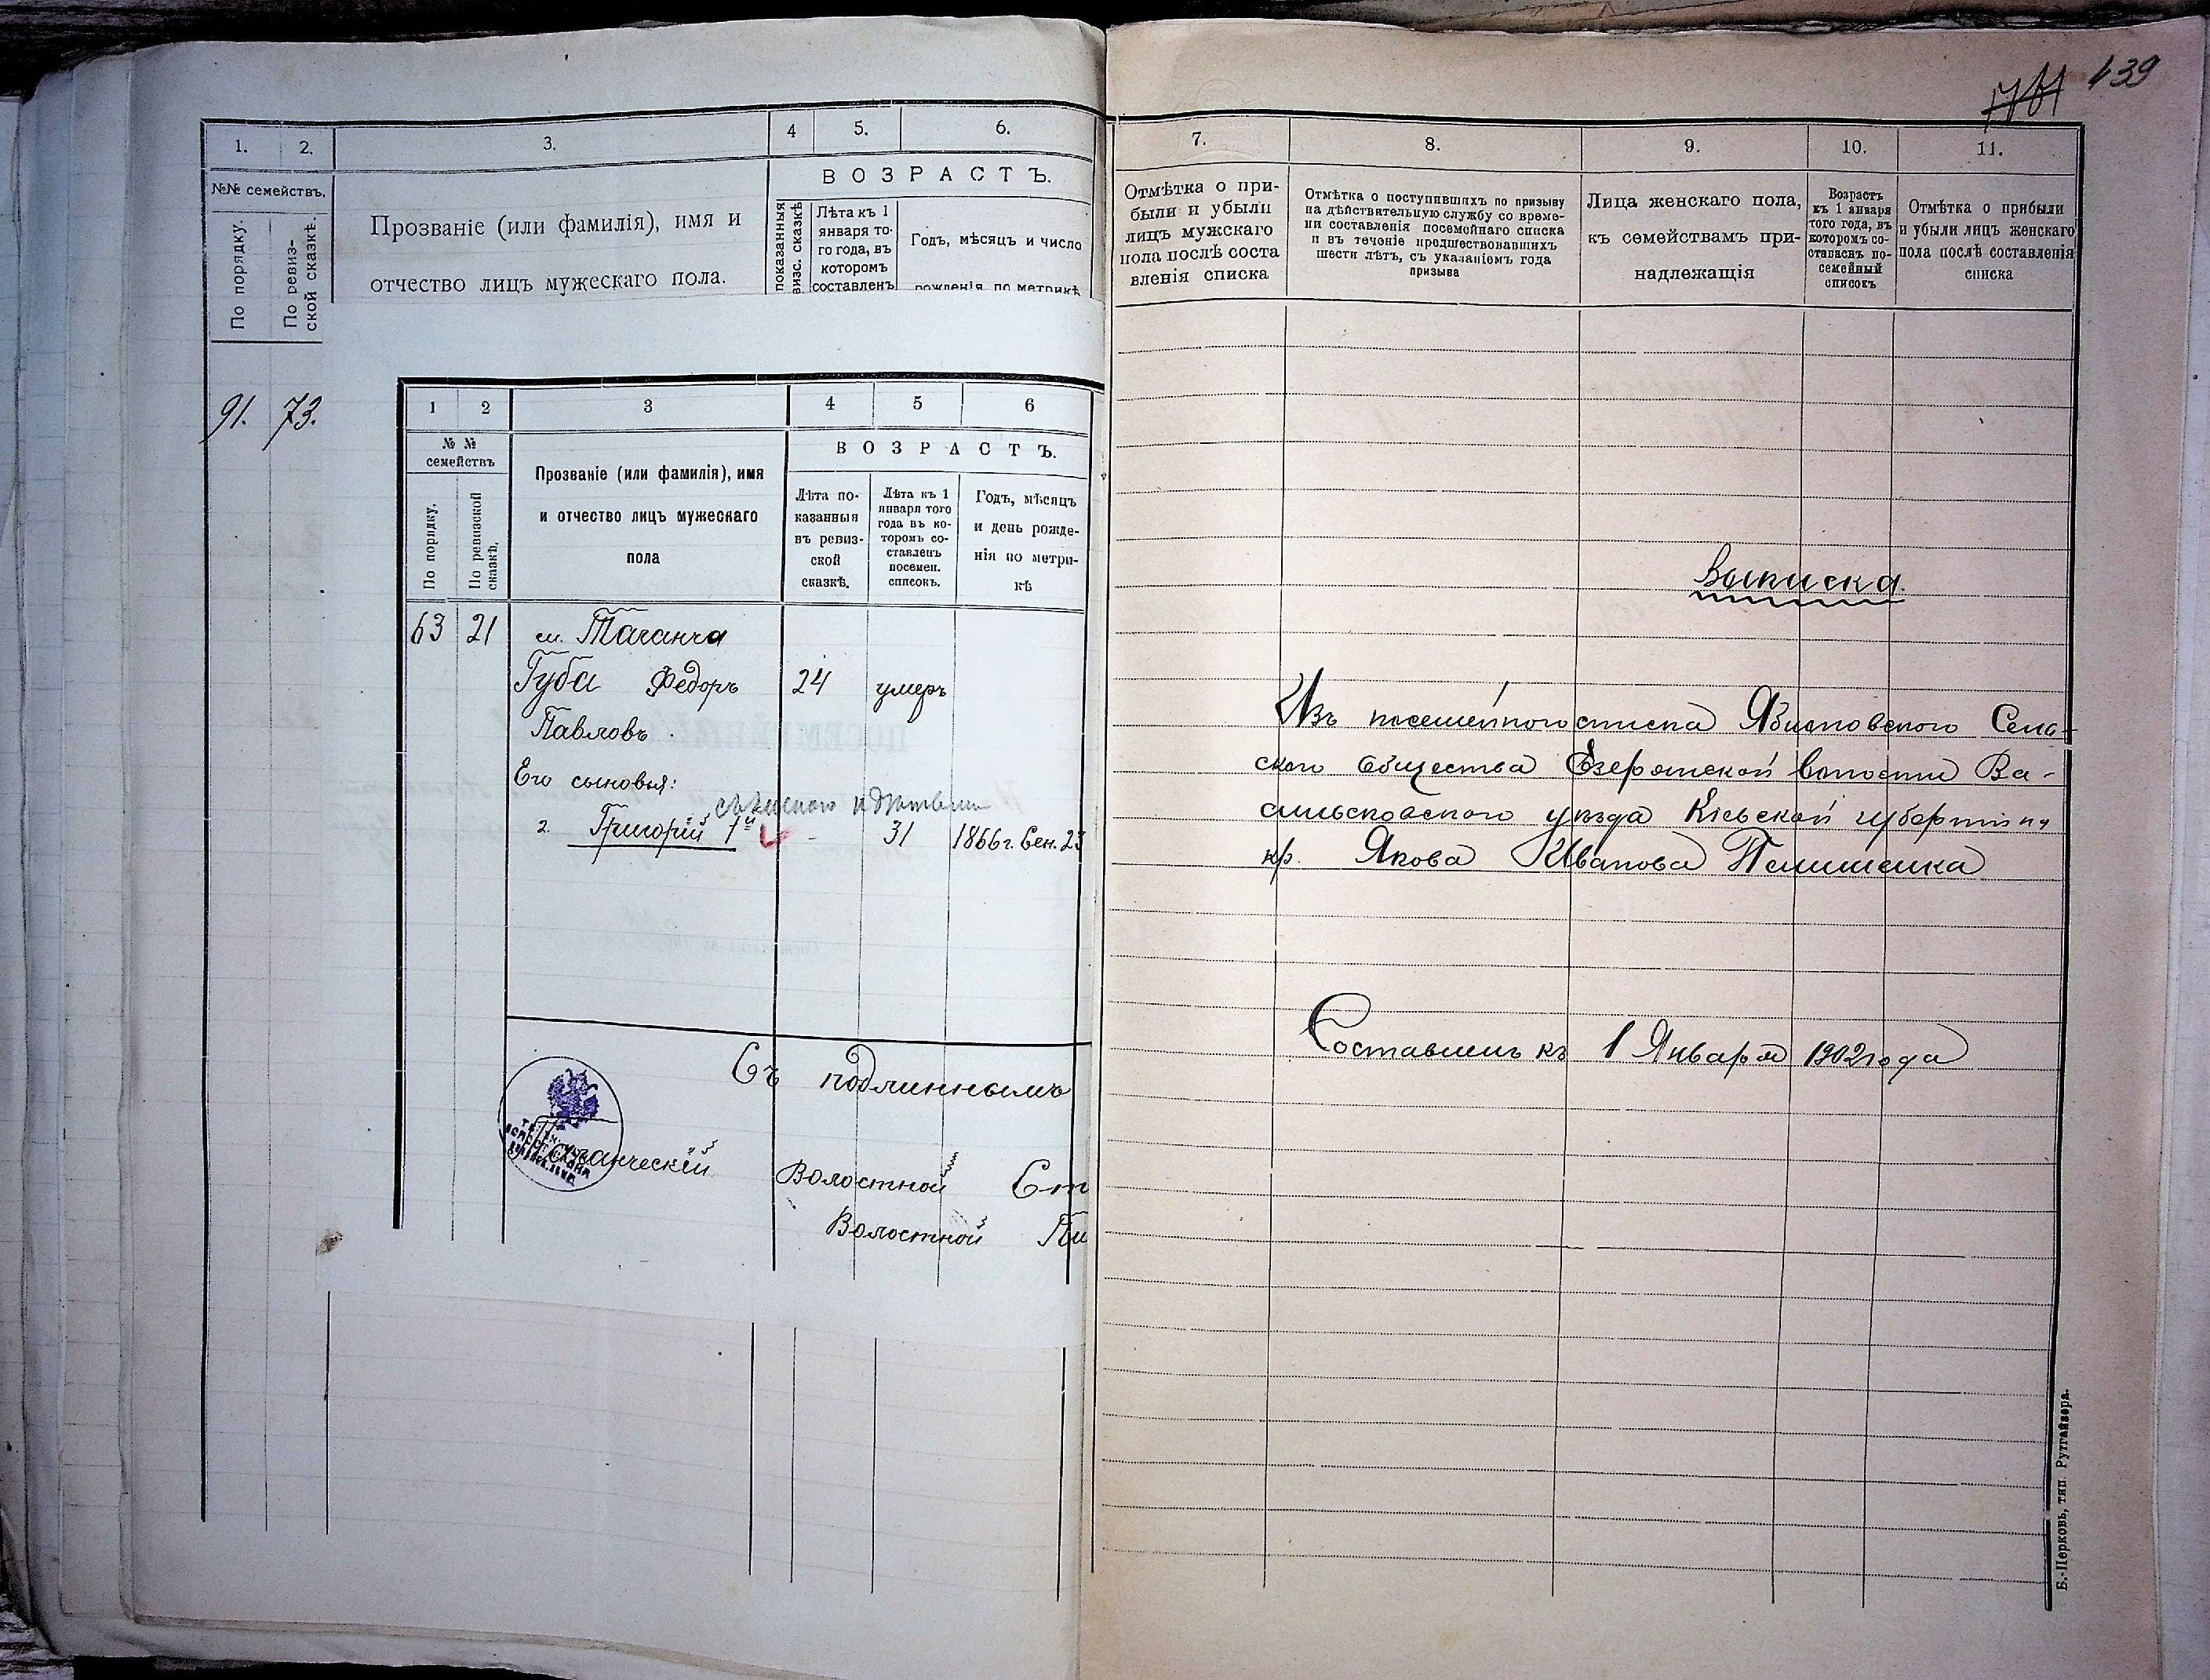 439
1. 2. 3. 4 5. 6.
№№ семействъ.
По порядку.
По ревиз-
ской сказкѣ.
Прозваніе (или фамилія), имя и
отчество лицъ мужескаго пола.
ВОЗРАСТЪ.
показанныя
визс. сказкѣ
Лѣта къ 1
января то-
го года, въ
которомъ
составленъ
Годъ, мѣсяцъ и число
рожденія по метрикѣ
91. 73.
1 2 3 4 5 6
№ №
семействъ
По порядку.
По ревизской
сказкѣ.
Прозваніе (или фамилія), имя
и отчество лицъ мужескаго
пола
ВОЗРАСТЪ.
Лѣта по-
казанныя
въ ревиз-
ской
сказкѣ.
Лѣта къ 1
января того
года въ ко-
торомъ со-
ставленъ
посемен.
списокъ.
Годъ, мѣсяцъ
и день рожде-
нія по метри-
кѣ
63 21 м. Таганча
Губа Федоръ 24 умеръ
Павловъ.
Его сыновья:
2. Григорій 1й - 31 1866 г. Сен. 23
Съ подлиннымъ
Таганческій
Волостной Ст
Волостной Пи
7. 8. 9. 10. 11.
Отмѣтка о при-
были и убыли
лицъ мужскаго
пола послѣ соста
вленія списка
Отмѣтка о поступившихъ по призыву
на дѣйствительную службу со време-
ни составленія посемейнаго списка
и въ теченіе предшествовавшихъ
шести лѣтъ, съ указаніемъ года
призыва
Лица женскаго пола,
къ семействамъ при-
надлежащія
Возрастъ
къ 1 января
того года, въ
которомъ со-
ставленъ по-
семейный
списокъ
Отмѣтка о прибыли
и убыли лицъ женскаго
пола послѣ составленія
списка
Выписка.
Изъ посемейного списка Яблоновского Сель-
ского Общества Езерянской волости Ва-
сильковского уѣзда Кіевской губерніи
кр. Якова Иванова Пелишенка
Составленъ къ 1 Января 1902 года
Б.-Церковь, тип. Рутгайзера.